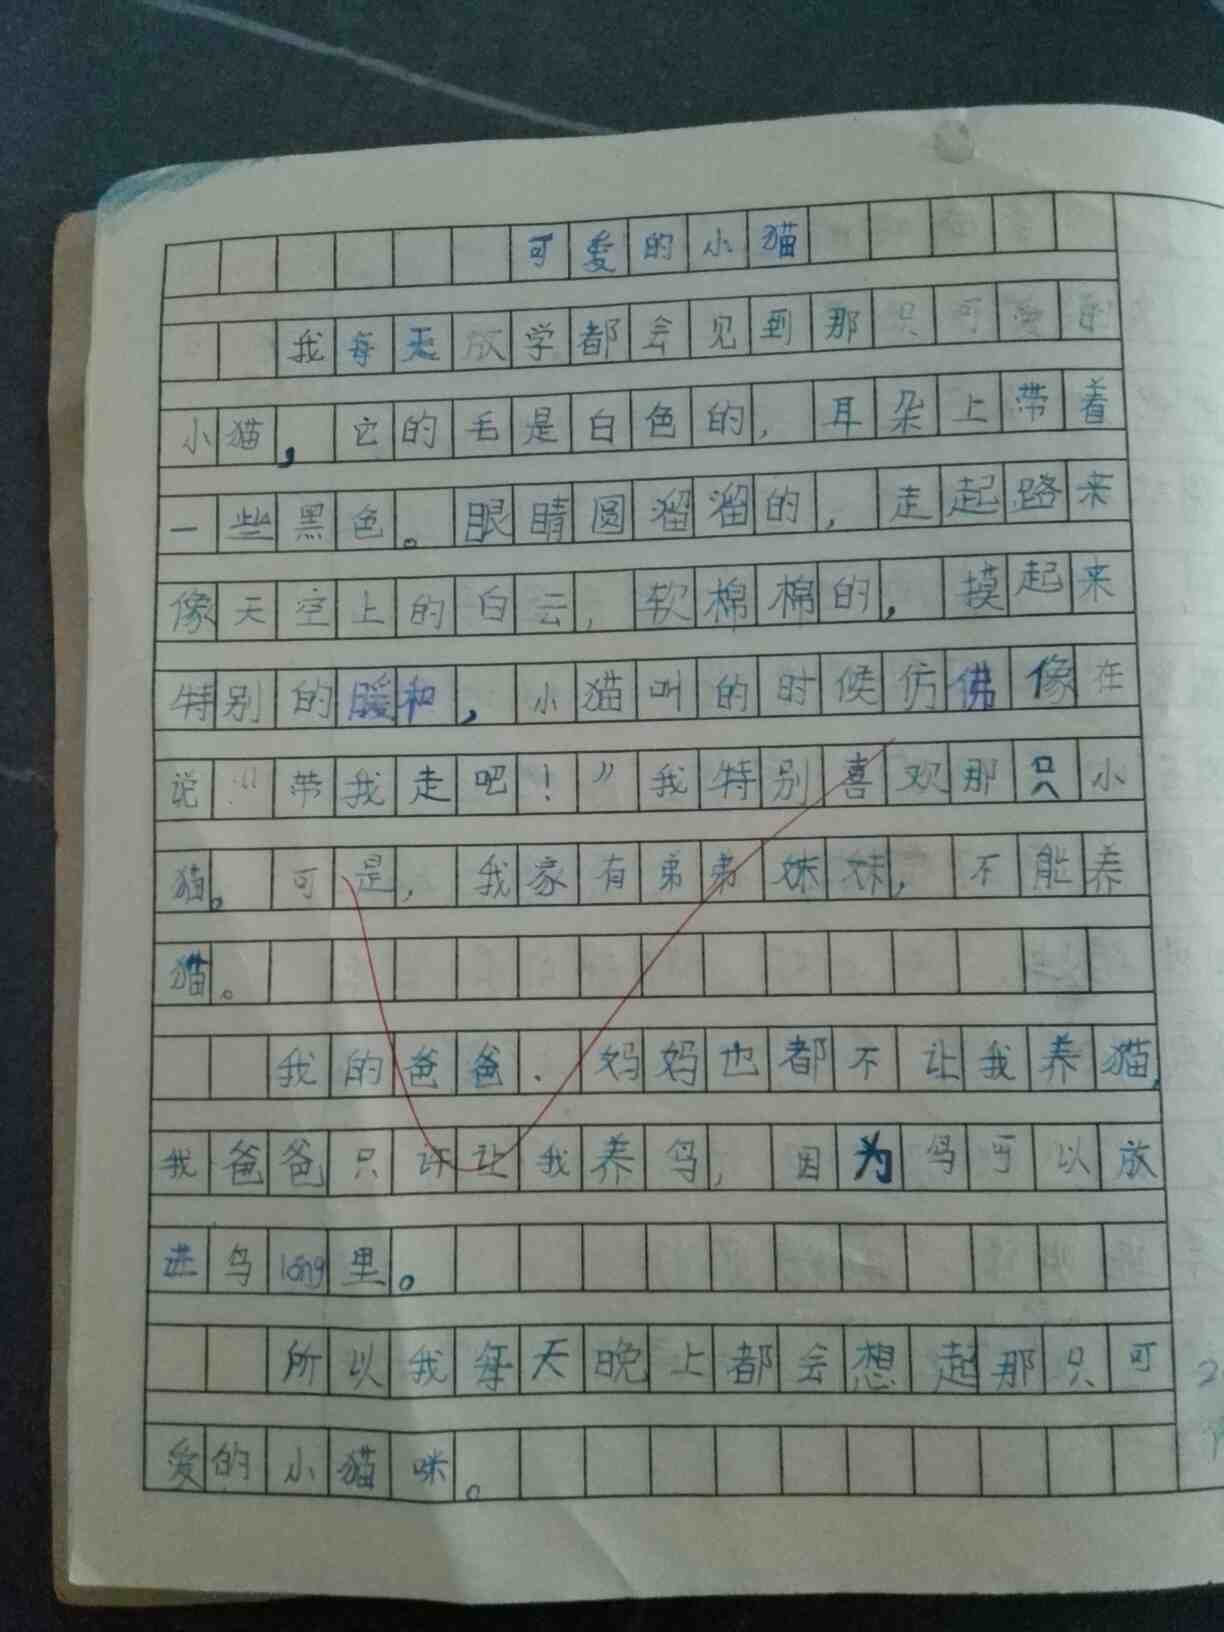 可爱的小猫
我每天放学都会见到那只可爱的
小猫，它的毛是白色的，耳朵上带着
一些黑色。眼睛圆溜溜的，走起路来
像天空上的白云，软棉棉的，摸起来
特别的暖和，小猫叫的时候仿佛像在
说“带我走吧！”我特别喜欢那只小
猫。可是，我家有弟弟妹妹，不能养
猫。
我的爸爸、妈妈也都不让我养猫，
我爸爸只许让我养鸟，因为鸟可以放
进鸟lóng里。
所以我每天晚上都会想起那只可
爱的小猫咪。